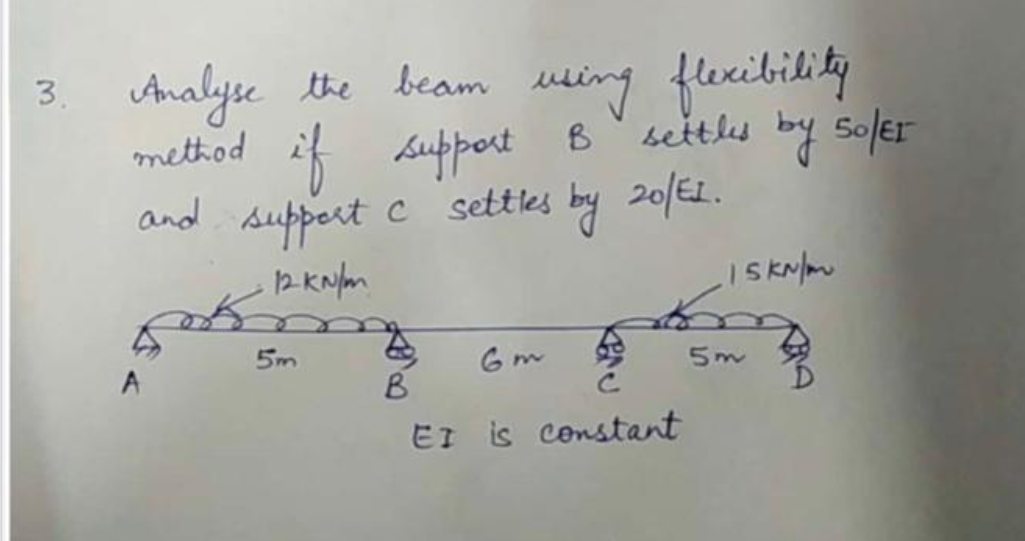 3. Analyse the beam using flexibility
method if support B settles by 50/EI
and support C settles by 20/EI.
12 KN/m 15 KN/m
5m 6m 5m
A B C D
EI is constant